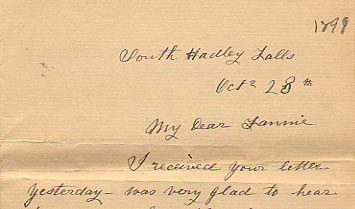 1899
South Hadley Falls
Oct 28th
My Dear Fannie
I received your letter
yesterday - was very glad to hear